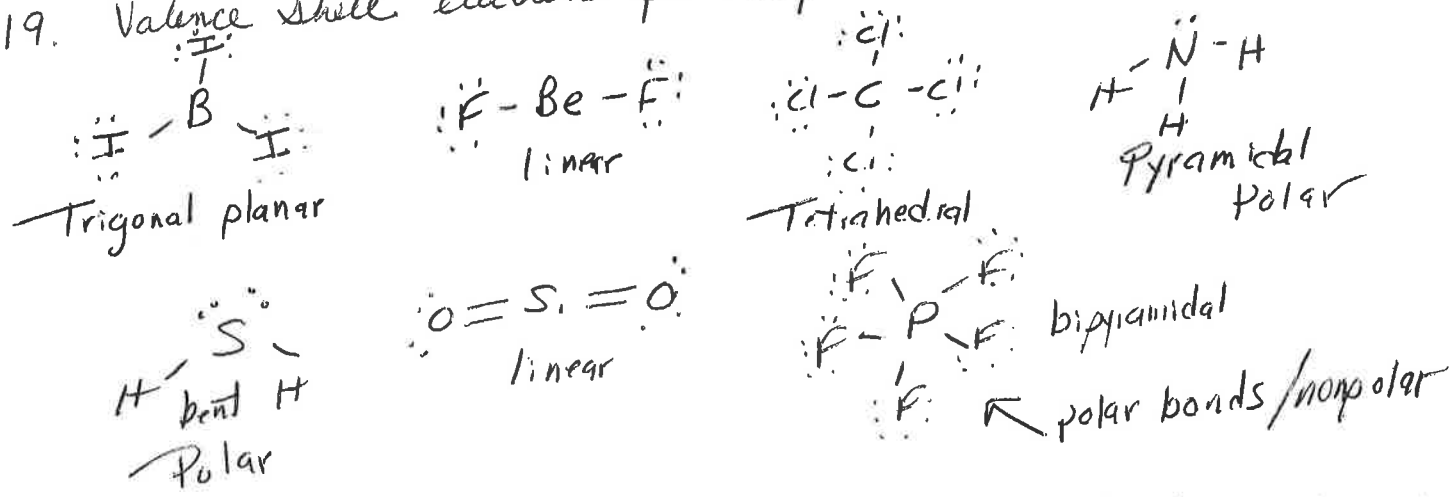 19. Valence shell
:I:
B
:I I:
Trigonal planar
:F - Be - F:
linear
:Cl:
:Cl - C - Cl:
:Cl:
Tetrahedral
N - H
H
H
Pyramidal
Polar
S
H H
bent
Polar
O = Si = O
linear
F F
F - P F
F
bipyramidal
polar bonds/nonpolar